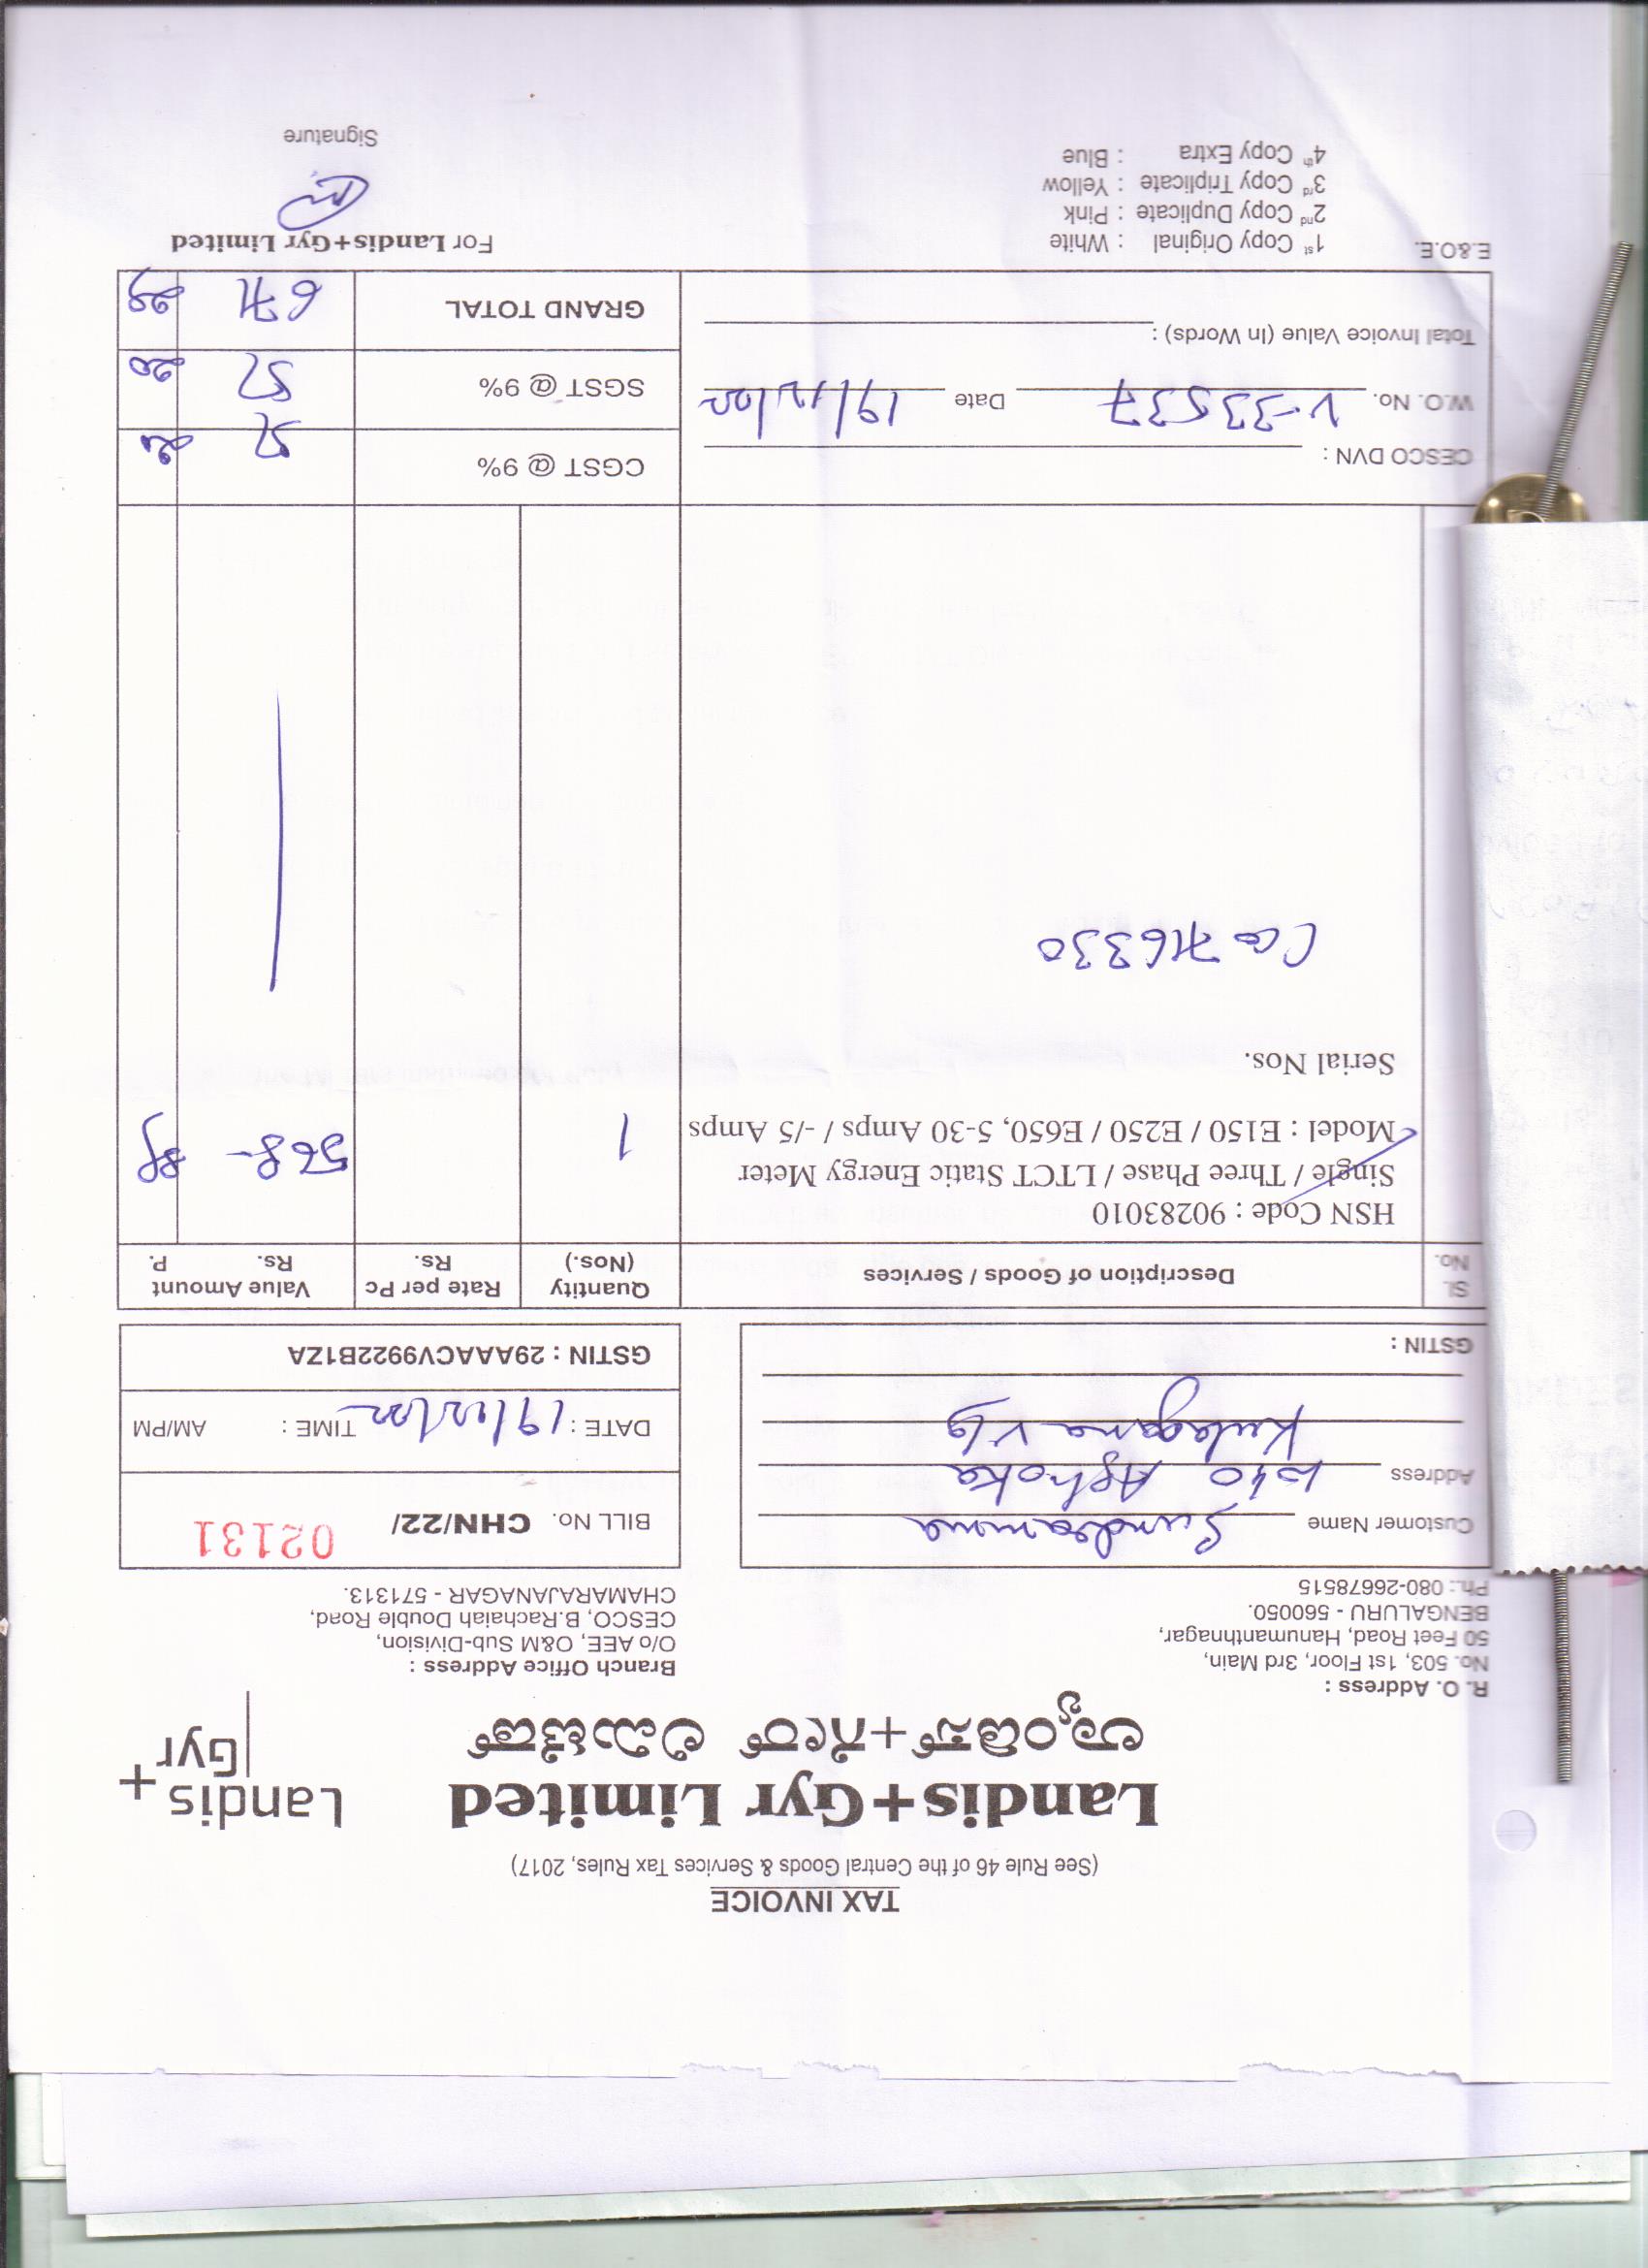 TAX INVOICE
(See Rule 46 of the Central Goods & Services Tax Rules, 2017)
Landis+Gyr Limited
ಲ್ಯಾಂಡಿಸ್+ಗೇರ್ ಲಿಮಿಟೆಡ್
Landis+
Gyr
R. O. Address :
No. 503, 1st Floor, 3rd Main,
50 Feet Road, Hanumanthnagar,
BENGALURU - 560050.
Ph.: 080-26678515
Branch Office Address :
O/o AEE, O&M Sub-Division,
CESCO, B.Rachaiah Double Road,
CHAMARAJANAGAR - 571313.
Customer Name Sundramma
Address w/o Ashoka
Kulagana Vlg
GSTIN :
BILL No. CHN/22/ 02131
DATE : 19/12/22 TIME : AM/PM
GSTIN : 29AAACV9922B1ZA
Sl. No. Description of Goods / Services Quantity (Nos.) Rate per Pc Rs. Value Amount Rs. P.
HSN Code : 90283010
Single / Three Phase / LTCT Static Energy Meter
Model : E150 / E250 / E650, 5-30 Amps / -/5 Amps 1 568- 89
Serial Nos.
716330
CESCO DVN :
W.O. No. V-33537 Date 19/12/22
Total Invoice Value (In Words) :
CGST @ 9% 51 20
SGST @ 9% 51 20
GRAND TOTAL 671 29
E.&O.E.
1st Copy Original : White
2nd Copy Duplicate : Pink
3rd Copy Triplicate : Yellow
4th Copy Extra : Blue
For Landis+Gyr Limited
Signature